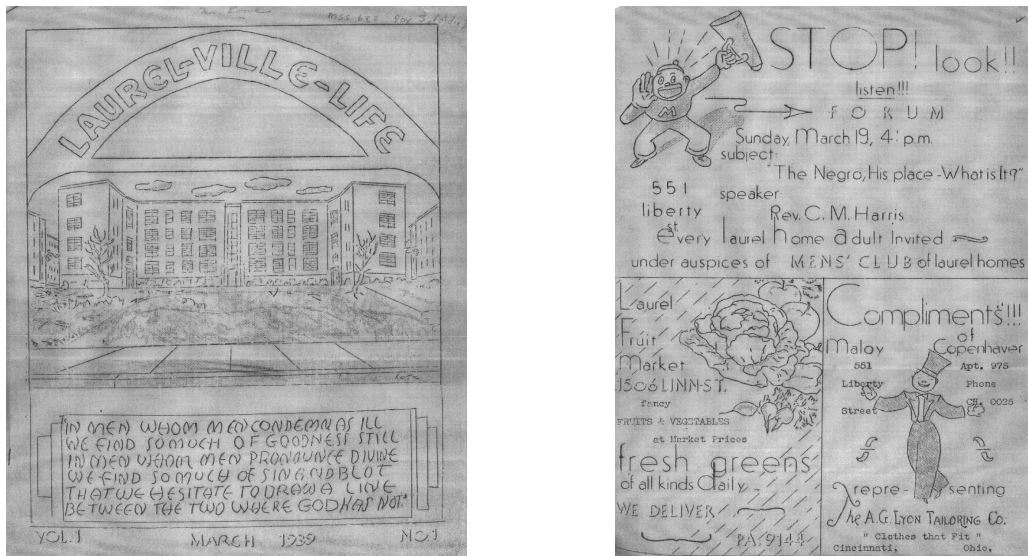 MSS 687 Box 3,
LAUREL-VILLE-LIFE
"IN MEN WHOM MEN CONDEMN AS ILL
WE FIND SO MUCH OF GOODNESS STILL
IN MEN WHOM MEN PRONOUNCE DIVINE
WE FIND SO MUCH OF SIN AND BLOT
THAT WE HESITATE TO DRAW A LINE
BETWEEN THE TWO WHERE GOD HAS NOT."
VOL. 1 MARCH 1939 NO. 1
STOP! look!!
listen!!!
FORUM
M
Sunday, March 19, 4: p.m.
subject:
"The Negro, His place - What is It?"
551
liberty
st
speaker
Rev. C. M. Harris
every laurel home adult Invited
under auspices of MENS' CLUB of laurel homes
Laurel
Fruit
Market
1506 LINN-ST.
fancy
FRUITS & VEGETABLES
at Market Prices
fresh greens
of all kinds daily
WE DELIVER
PA. 9144
Compliments!!!
of
Maloy Copenhaver
551 Apt. 975
Liberty Phone
Street CH. 0025
repre- senting
The A.G. LYON TAILORING CO.
" Clothes that Fit "
Cincinnati, Ohio,